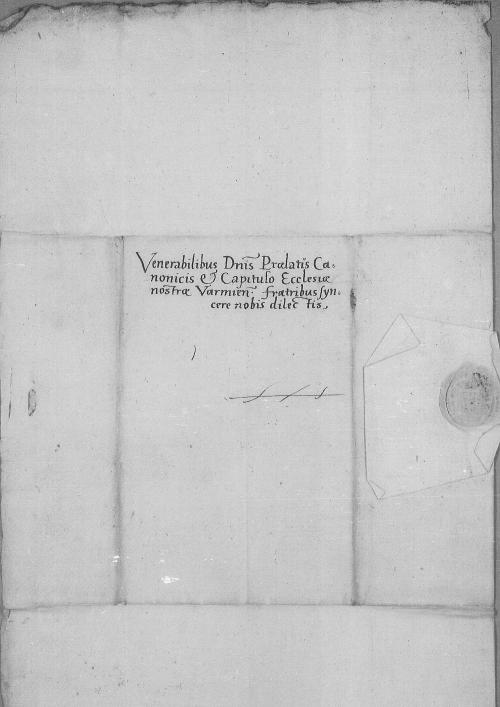 Venerabilibus Dnis̃ Prælatis Ca-
nonicis & Capitulo Ecclesiæ
nostræ Varmieñ: fratribus syn-
cere nobis dilectis,